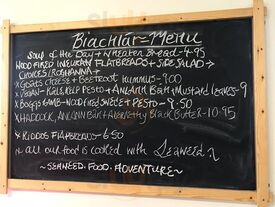 Biachlár=Menu
Soup of the Day + Wheaten Bread-4.95
Wood Fired Flatbreads + Side Salad→
Choices/
x Goats Cheese + Beetroot Hummus-9.00
x Vegan-Kale, Kelp Pesto + Mustard Leaves-9
x Lamb-Wood Fired Swede + Pesto-9.50
x Haddock, Black Butter-10.95
x Kiddos Flatbreads-6.50
~ all our food is cooked with Seaweed ~
~SEAWEED.FOOD.ADVENTURE~